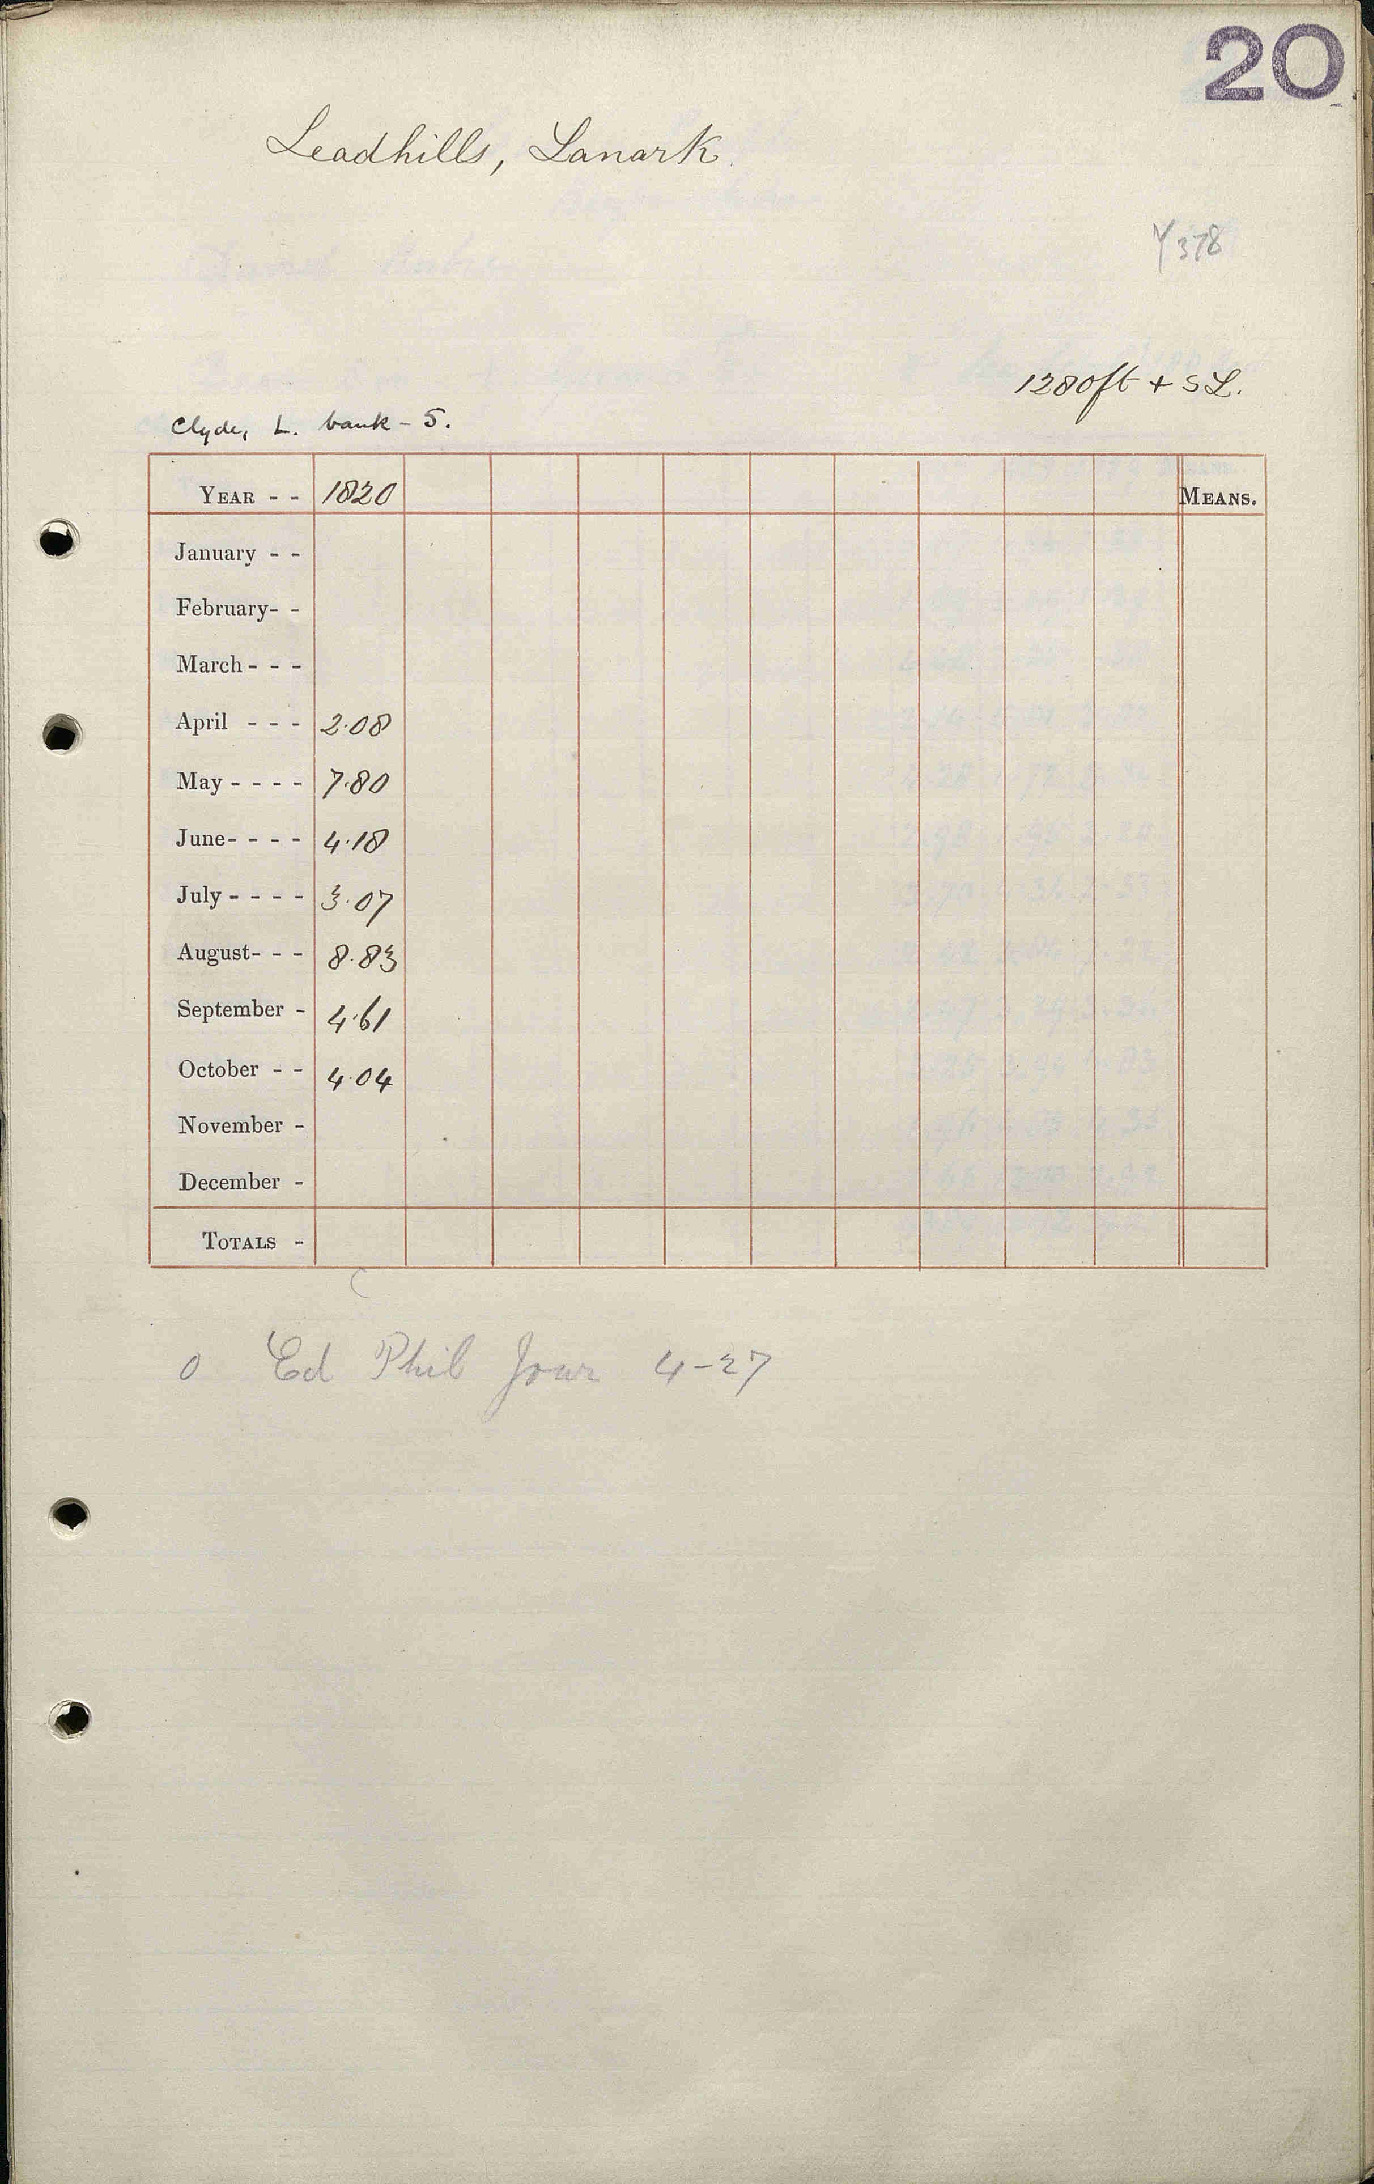 20
Leadhills, Lanark.
Y378
1280ft + SL.
Clyde, L. bank - 5.
YEAR - - 1820 MEANS.
January - -
February- -
March - - -
April - - - 2.08
May - - - - 7.80
June- - - - 4.18
July - - - - 3.07
August- - - 8.83
September - 4.61
October - - 4.04
November -
December -
TOTALS -
C
0 Ed Phil Jour 4-27